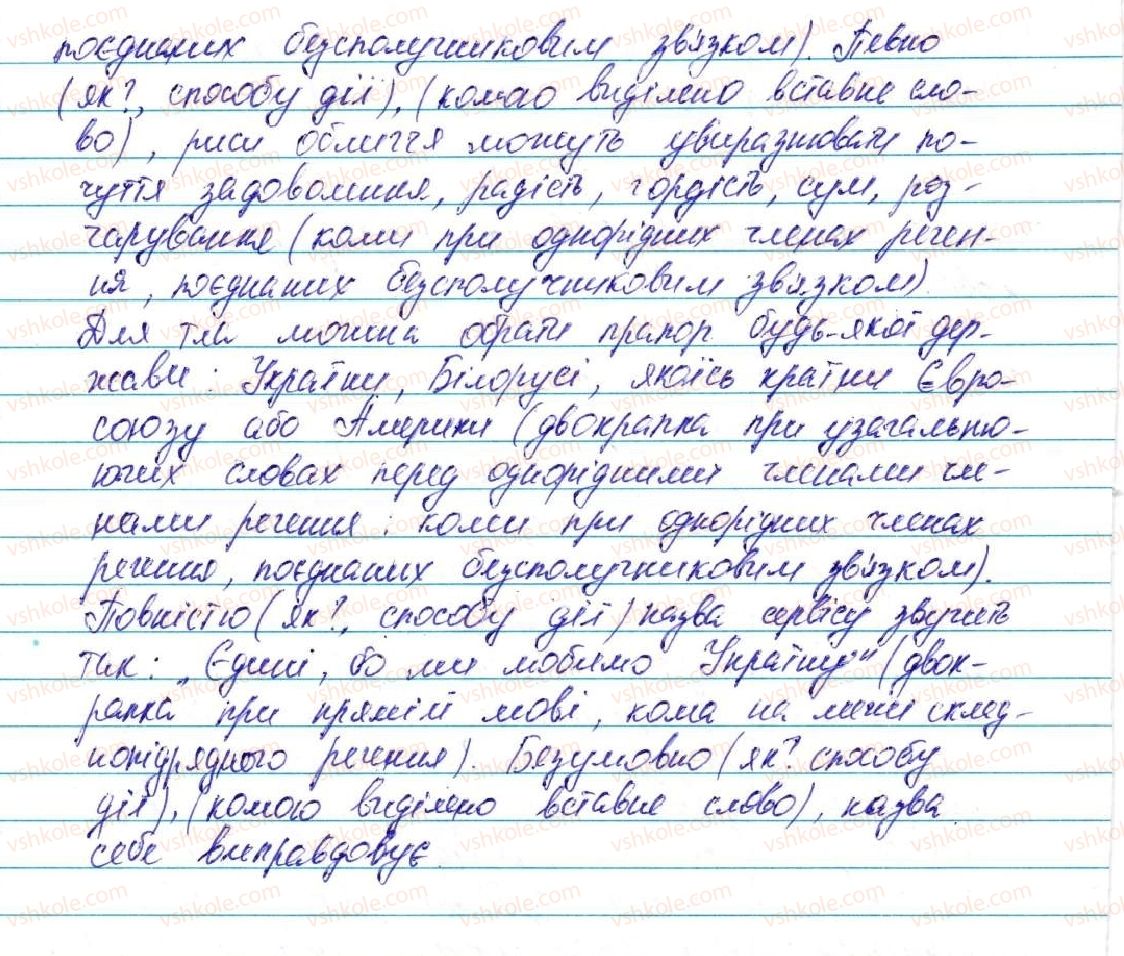 поєднаних безсполучниковим зв'язком). Певно
(як?, способу дії), (комою виділено вставне сло-
во), риси обличчя можуть увиразнювати по-
чуття задоволення, радість, гордість, сум, роз-
чарування (коми при однорідних членах речен-
ня, поєднаних безсполучниковим зв'язком).
Для тла можна обрати прапор будь-якої дер-
жави: України, Білорусі, якоїсь країни Євро-
союзу або Америки (двокрапка при узагальню-
ючих словах перед однорідними членами чле-
нами речення; коми при однорідних членах
речення, поєднаних безсполучниковим зв'язком).
Повністю (як?, способу дії) назва сервісу звучить
так: „Єдині, бо ми любимо Україну" (двок-
рапка при прямій мові, кома на межі склад-
нопідрядного речення). Безумовно (як? способу
дії), (комою виділено вставне слово), назва
себе виправдовує.
vshkole.com